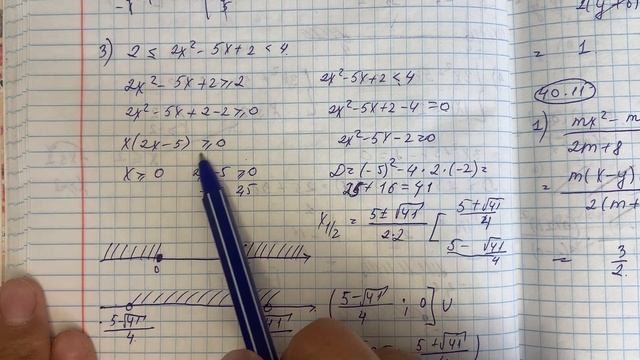 3) 2 ≤ 2x² - 5x + 2 < 4
2x² - 5x + 2 ≥ 2
2x² - 5x + 2 - 2 ≥ 0
x(2x - 5) ≥ 0
x ≥ 0 5 ≥ 0
2,5
0
5-√41
4
√41
2x² - 5x + 2 < 4
2x² - 5x + 2 - 4 = 0
2x² - 5x - 2 = 0
D = (-5)² - 4 · 2 · (-2) =
25 + 16 = 41
x1/2 = 5 ± √41 / 2·2 [ 5 + √41 / 4
5 - √41 / 4
(5-√41 / 4 ; 0] ∪
5+√41
= 1
40.11
1) mx² - m
2m + 8
= m(x - y)
2(m +
= 3/2